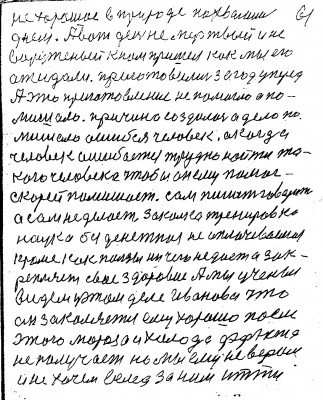 не хорошое в природе похвалили 61
днем. А вот день не мертвый и не
к нам пришел как мы его
ожидали. приготовили за году вперед
А это приготовление не помогло а по-
мишало. причино создалося дело по-
мишало ошибся человек. А когда
человек ошибается трудно найти та-
кого человека чтобы он ему помог-
скорей помишает. сам пишит говорит
а сам не делает. Закалка тренировка
наука бездонежная не оплачиваемая
кроме как пользы ничего не дает а зак-
репляет свое здоровие А мы ученыи
видем у этом деле Иванова что
он закаляется ему хорошо после
этого мороза и холода дефекта
не получает но мы ему не верим
и не хочем вслед за ним итти